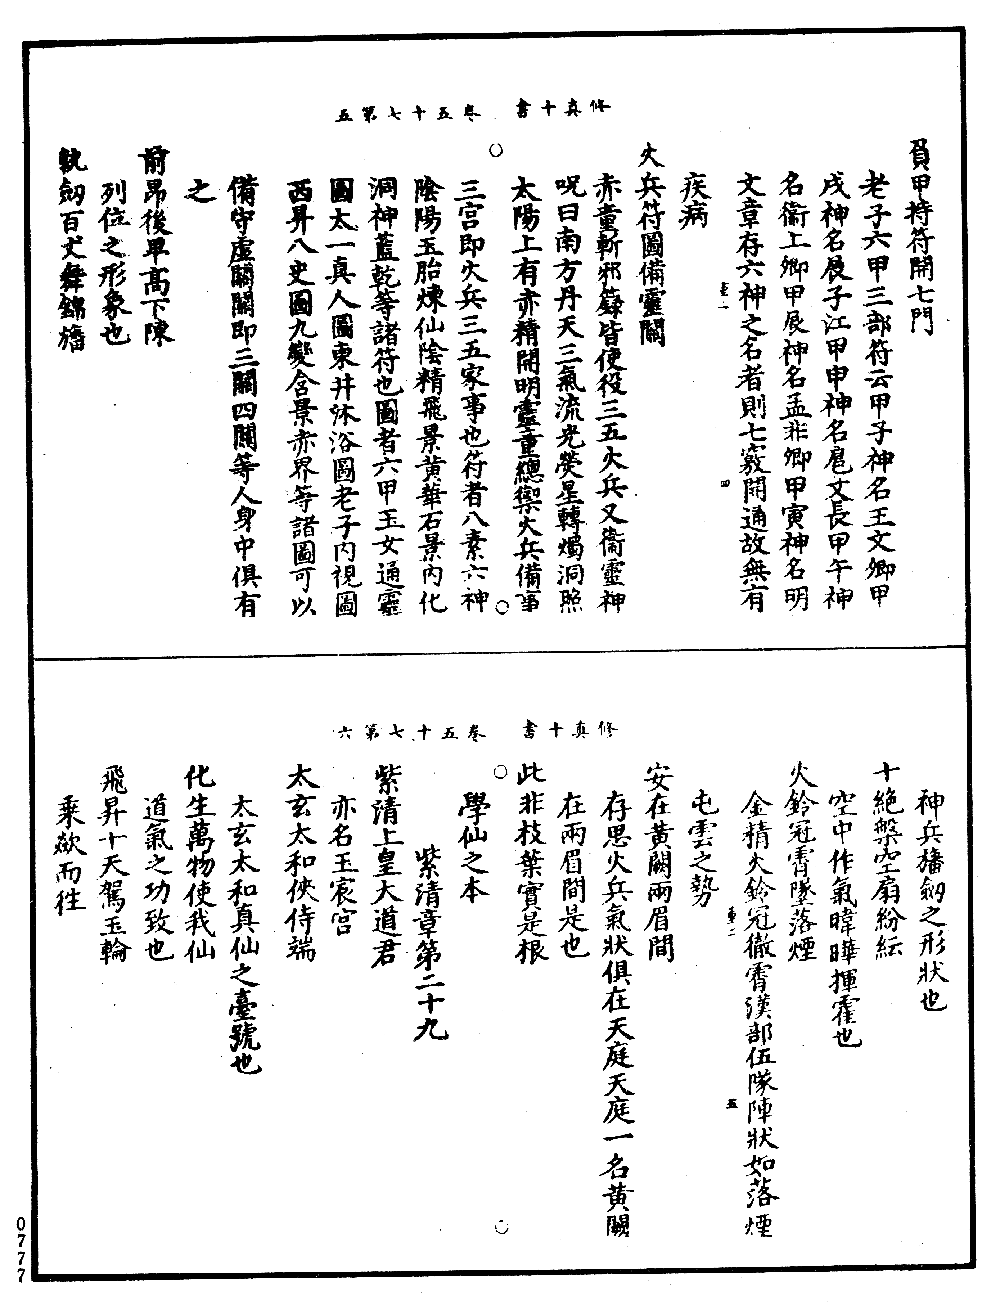 修真十書　卷五十七第五
負甲持符開七門
老子六甲三部符云甲子神名王文卿甲
戌神名展子江甲申神名扈文長甲午神
名衞上卿甲辰神名孟非卿甲寅神名明
文章存六神之名者則七竅開通故無有
重一　四
疾病
火兵符圖備靈關
赤童斬邪籙皆使役三五火兵又衞靈神
呪曰南方丹天三氣流光熒星轉燭洞照
太陽上有赤精開明靈童總禦火兵備事
三宮即火兵三五家事也符者八素六神
陰陽玉胎煉仙陰精飛景黃華石景內化
洞神藍乾等諸符也圖者六甲玉女通靈
圖太一真人圖東井沐浴圖老子內視圖
西昇八史圖九變含景赤界等諸圖可以
備守虛關關即三關四關等人身中俱有
之
前昂後卑高下陳
列位之形象也
執劒百丈舞錦旛
修真十書　卷五十七第六
神兵旛劒之形狀也
十絕槃空扇紛紜
空中作氣暐曄揮霍也
火鈴冠霄墜落煙
金精火鈴冠徹霄漢部伍隊陣狀如落煙
重二　五
屯雲之勢
安在黃闕兩眉間
存思火兵氣狀俱在天庭天庭一名黃闕
在兩眉間是也
此非枝葉實是根
學仙之本
紫清章第二十九
紫清上皇大道君
亦名玉宸宮
太玄太和俠侍端
太玄太和真仙之臺號也
化生萬物使我仙
道氣之功致也
飛昇十天駕玉輪
乘歘而往
0777